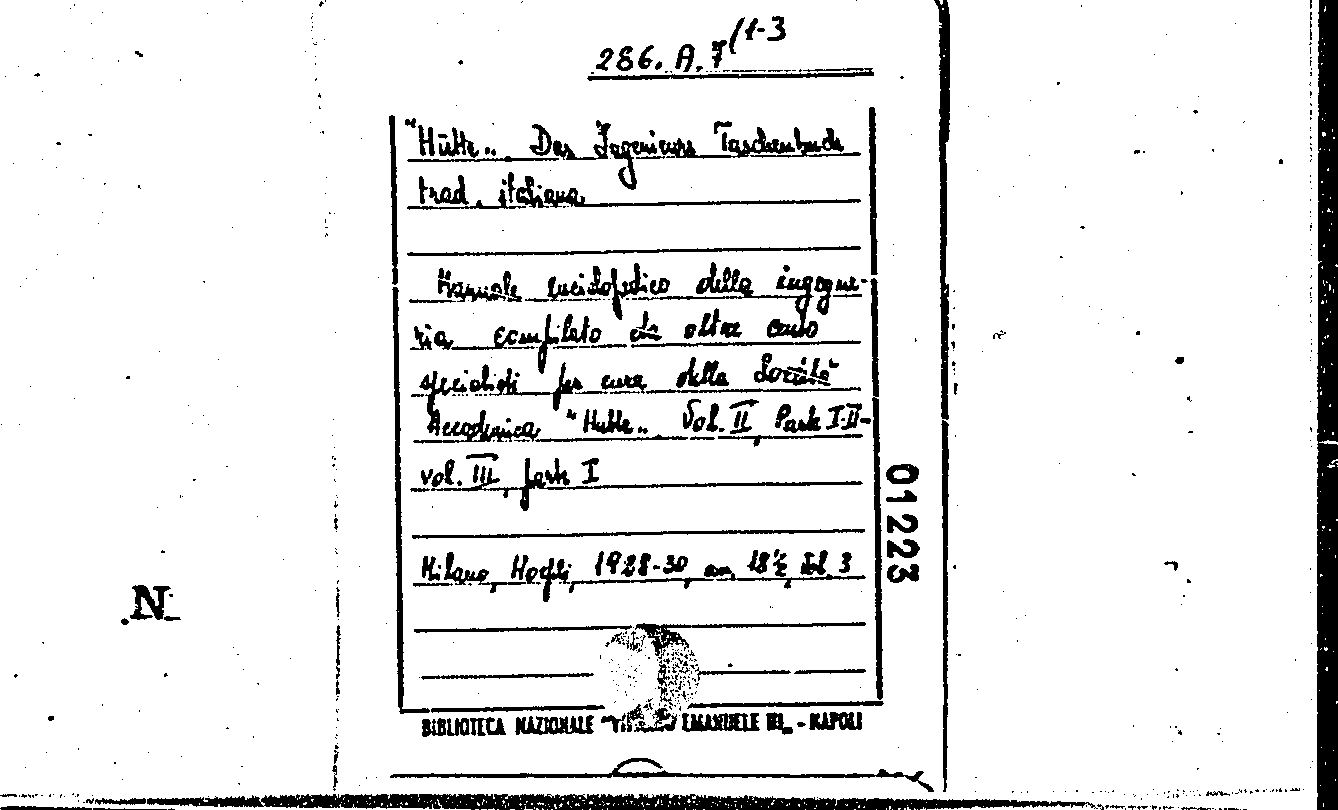 286. A. 7/1-3
"Hütte„. Des Ingenieurs Taschenbuch
trad. italiana
Manuale enciclopedico della ingegne-
ria compilato da oltre cento
specialisti per cura della Società
Accademica "Hütte„. Vol. II, Parte I-II-
vol. III, parte I
Milano, Hoepli, 1928-30, cm. 18½, vol. 3
BIBLIOTECA NAZIONALE "VITTORIO EMANUELE III„ - NAPOLI
01223
N